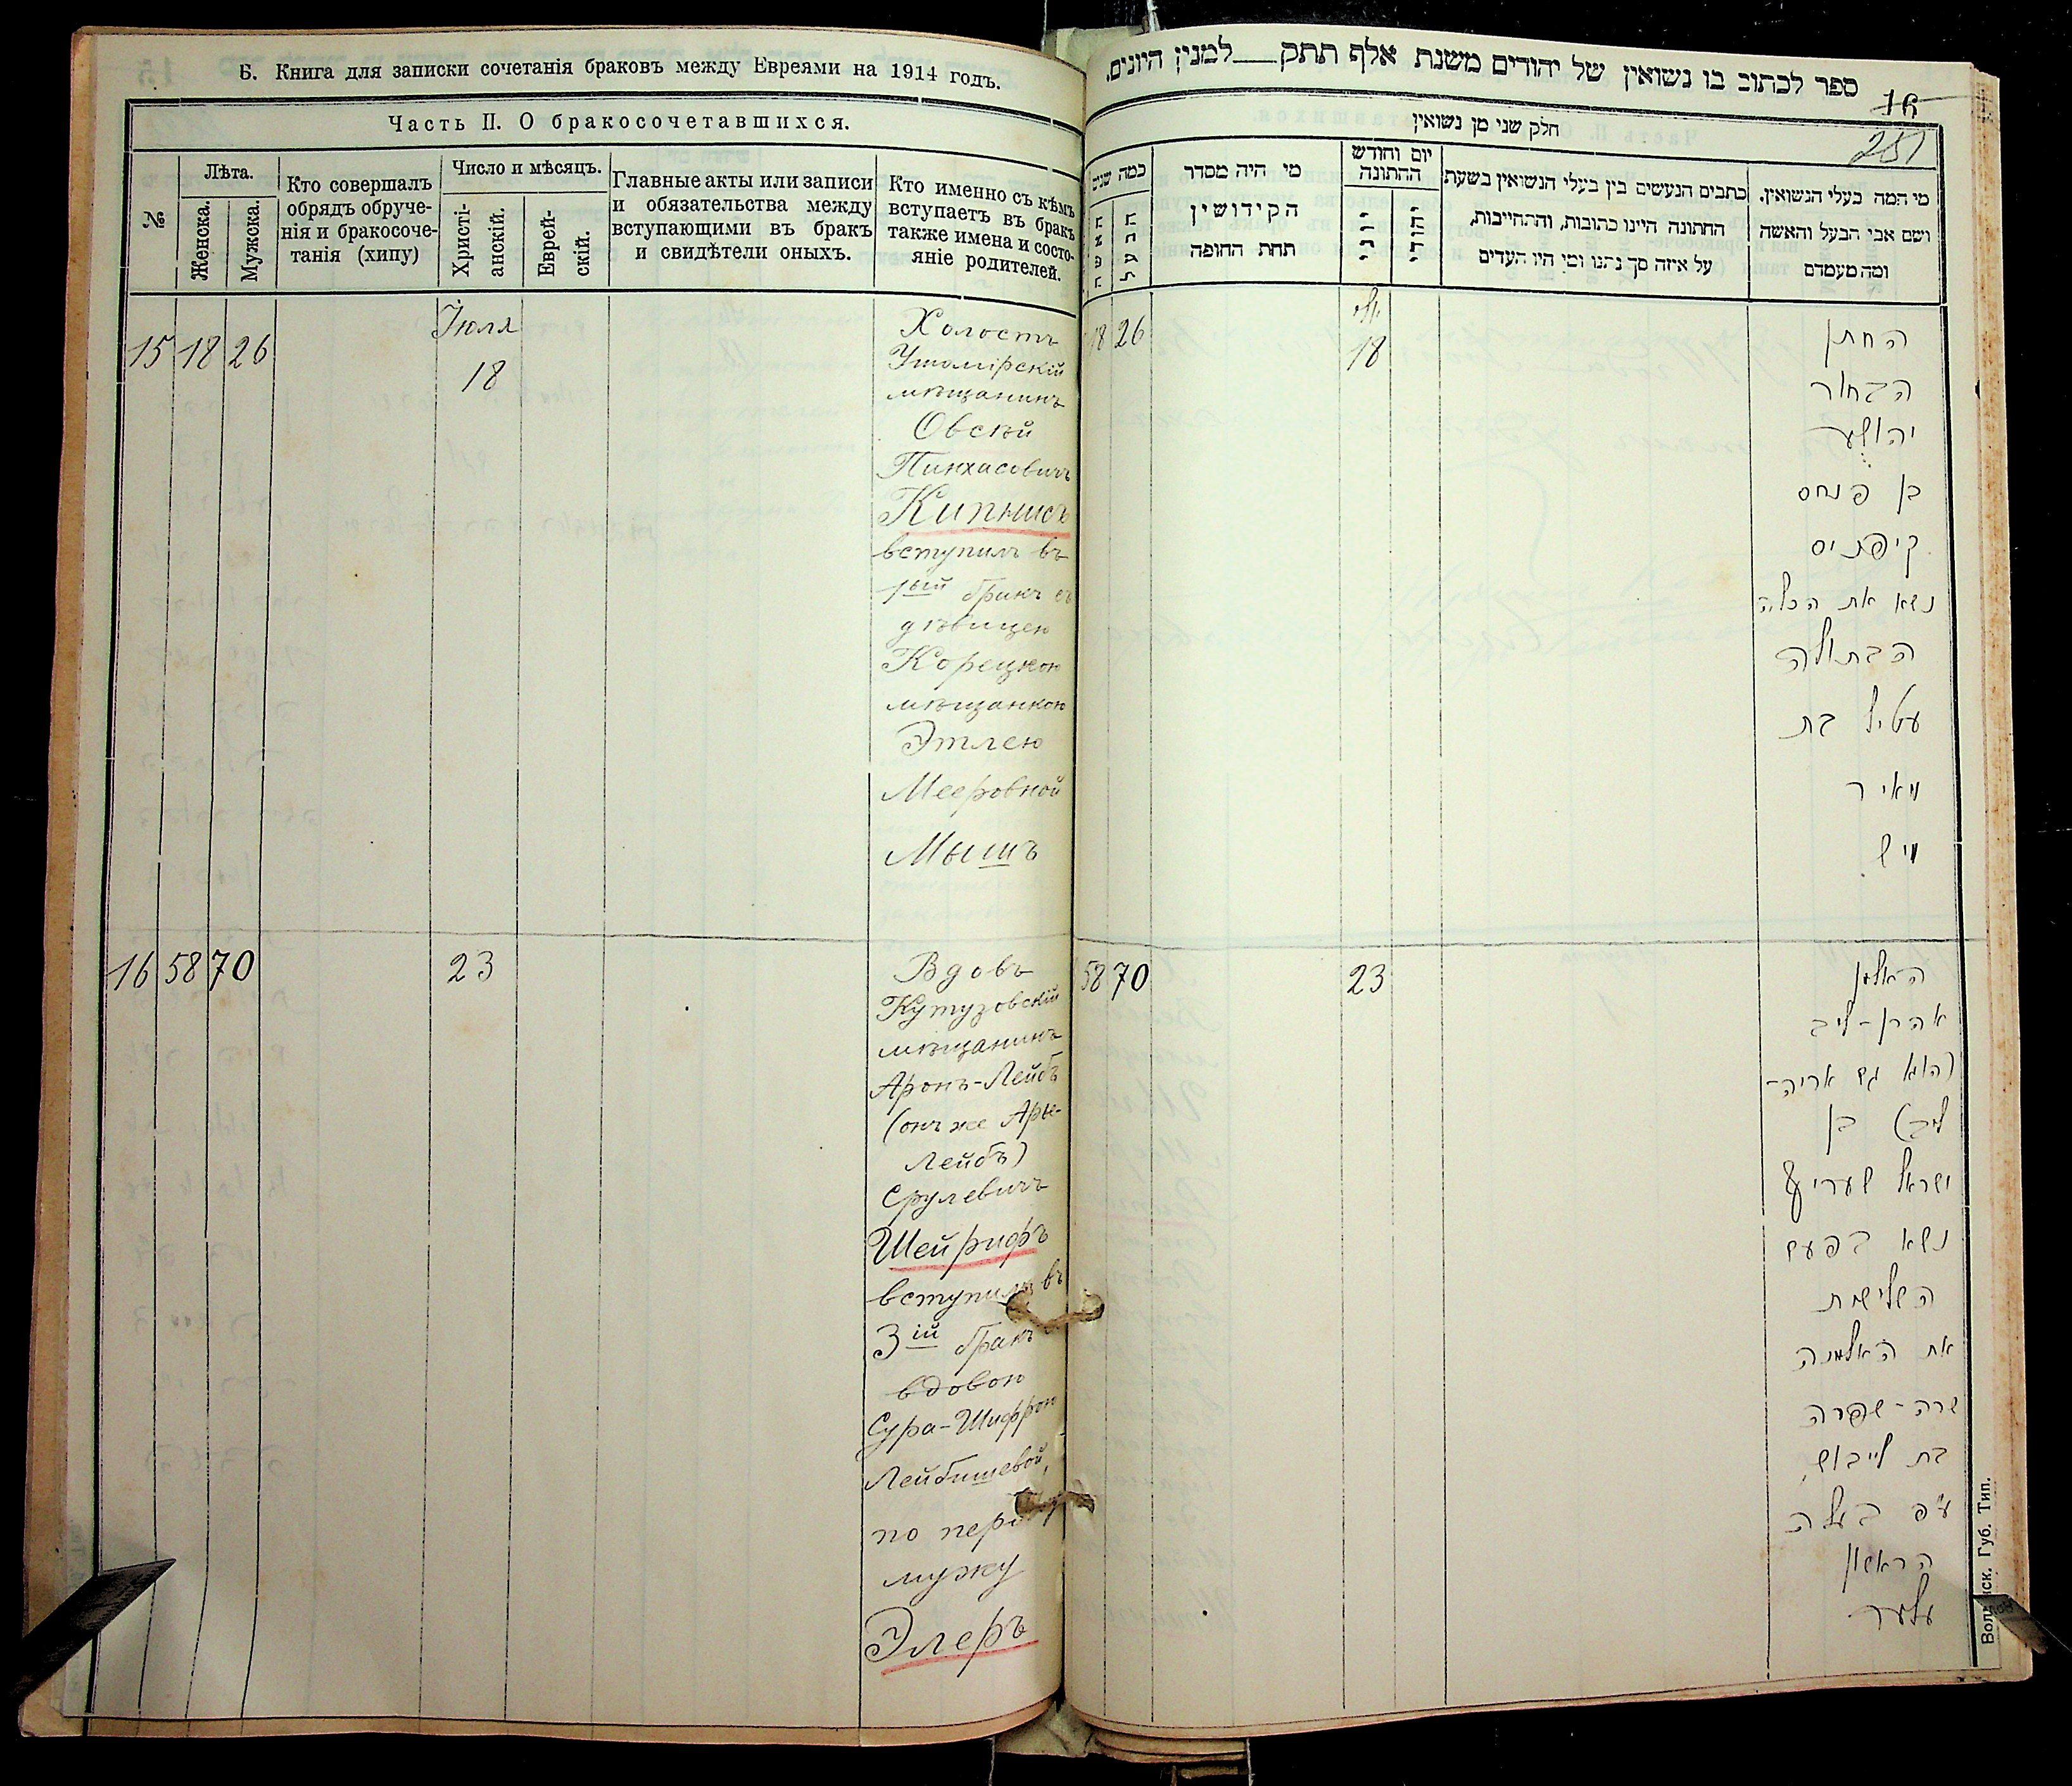 Б. Книга для записки сочетанія браковъ между Евреями на 1914 годъ.
Часть II. О бракосочетавшихся.
№
Лѣта.
Женска.
Мужска.
Кто совершалъ
обрядъ обруче-
нія и бракосоче-
танія (хипу)
Число и мѣсяцъ.
Христі-
анскій.
Еврей-
скій.
Главные акты или записи
и обязательства между
вступающими въ бракъ
и свидѣтели оныхъ.
Кто именно съ кѣмъ
вступаетъ въ бракъ
также имена и состо-
яніе родителей.
15 18 26
Іюля
18
Холостъ
Ушомірскій
мѣщанинъ
Овсѣй
Пинхасовичъ
Кипнисъ
вступилъ въ
1ый бракъ съ
дѣвицею
Корецкою
мѣщанкою
Этлею
Мееровной
Мышъ
16 58 70
23
Вдовъ
Кутузовскій
мѣщанинъ
Аронъ-Лейбъ
(онъ же Арье-
Лейбъ)
Срулевичъ
Шейрифъ
вступилъ въ
3ій бракъ
вдовою
Сура-Шифрою
Лейбишевой,
по перв
мужу
Элеръ
ספר לכתוב בו נשואין של יהודים משנת אלף תתק___למנין היונים.
16
251
חלק שני מן נשואין
כמה שנים
האשה
הבעל
מי היה מסדר
הקידושין
תחת החופה
יום וחודש
החתונה
כתבים הנעשים בין בעלי הנשואין בשעת
החתונה היינו כתובות, והתחייבות,
על איזה סך נתנו ומי היו העדים
מי המה בעלי הנשואין,
ושם אבי הבעל והאשה
ומה מעמדם
18 26
יולי
18
החתן
הבחור
יהושע
בן פנחס
קיפניס
נשא את הכלה
הבתולה
עטיל בת
מאיר
מיש
58 70
23
האלמן
אהרן-ליב
(הוא גם אריה-
ליב) בן
ישראל שעריף
נשא בפעם
השלישית
את האלמנה
שרה-שפרה
בת לייבוש,
ע"פ בעלה
הראשון
עלער
Волынск. Губ. Тип.